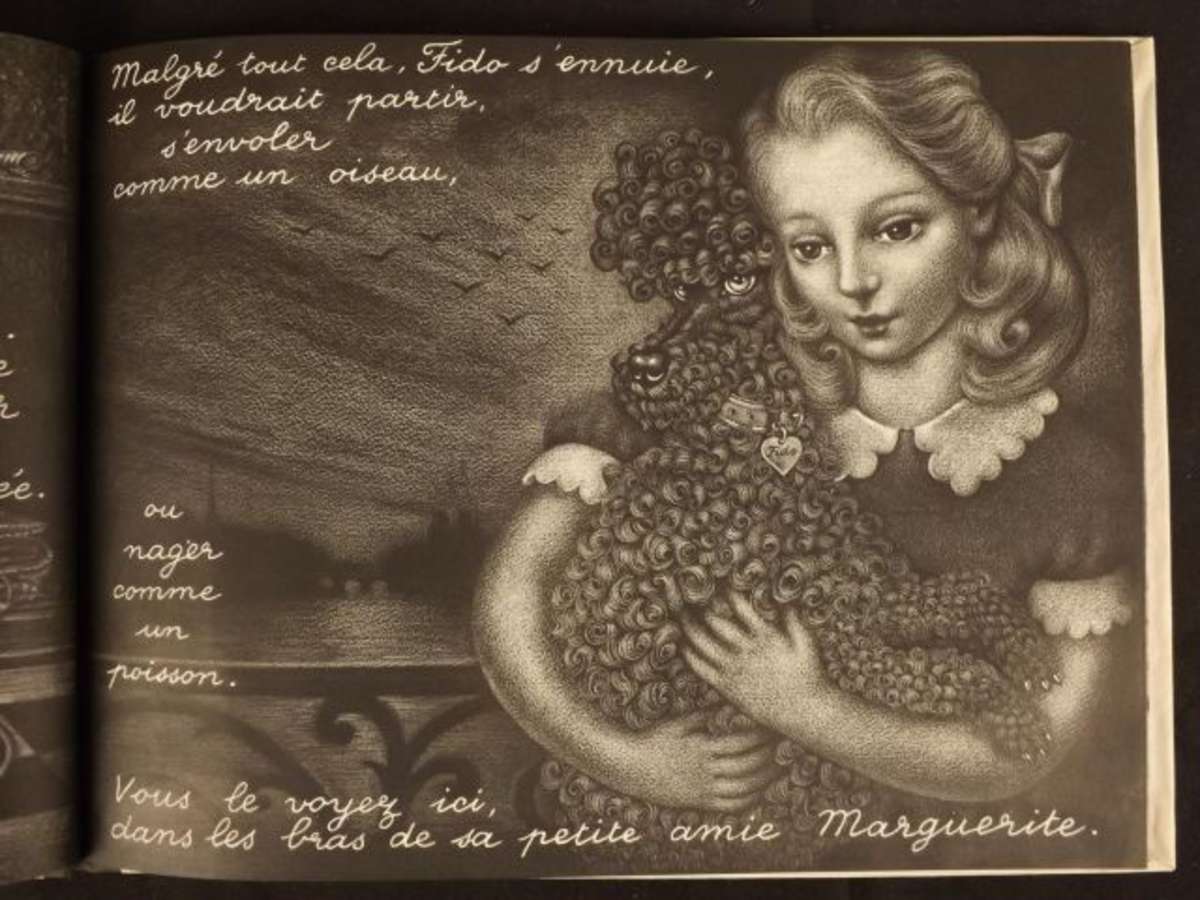 Malgré tout cela, Fido s'ennuie,
il voudrait partir,
s'envoler
comme un oiseau,
Fido
ou
nager
comme
un
poisson.
Vous le voyez ici,
dans les bras de sa petite amie Marguerite.